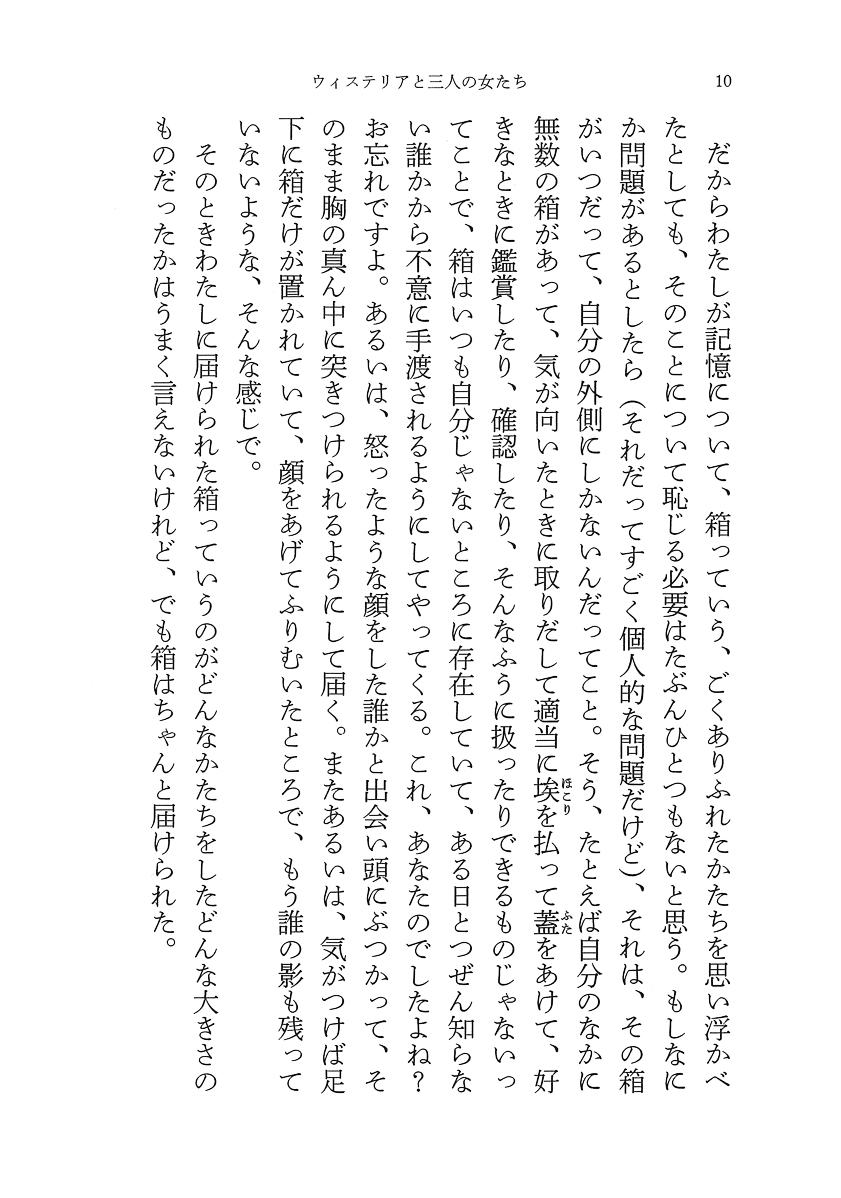 10
ウィステリアと三人の女たち
だからわたしが記憶について、箱っていう、ごくありふれたかたちを思い浮かべ
たとしても、そのことについて恥じる必要はたぶんひとつもないと思う。もしなに
か問題があるとしたら（それだってすごく個人的な問題だけど）、それは、その箱
がいつだって、自分の外側にしかないんだってこと。そう、たとえば自分のなかに
無数の箱があって、気が向いたときに取りだして適当に埃を払って蓋をあけて、好
きなときに鑑賞したり、確認したり、そんなふうに扱ったりできるものじゃないっ
てことで、箱はいつも自分じゃないところに存在していて、ある日とつぜん知らな
い誰かから不意に手渡されるようにしてやってくる。これ、あなたのでしたよね？
お忘れですよ。あるいは、怒ったような顔をした誰かと出会い頭にぶつかって、そ
のまま胸の真ん中に突きつけられるようにして届く。またあるいは、気がつけば足
下に箱だけが置かれていて、顔をあげてふりむいたところで、もう誰の影も残って
いないような、そんな感じで。
そのときわたしに届けられた箱っていうのがどんなかたちをしたどんな大きさの
ものだったかはうまく言えないけれど、でも箱はちゃんと届けられた。
ほこり
ふた